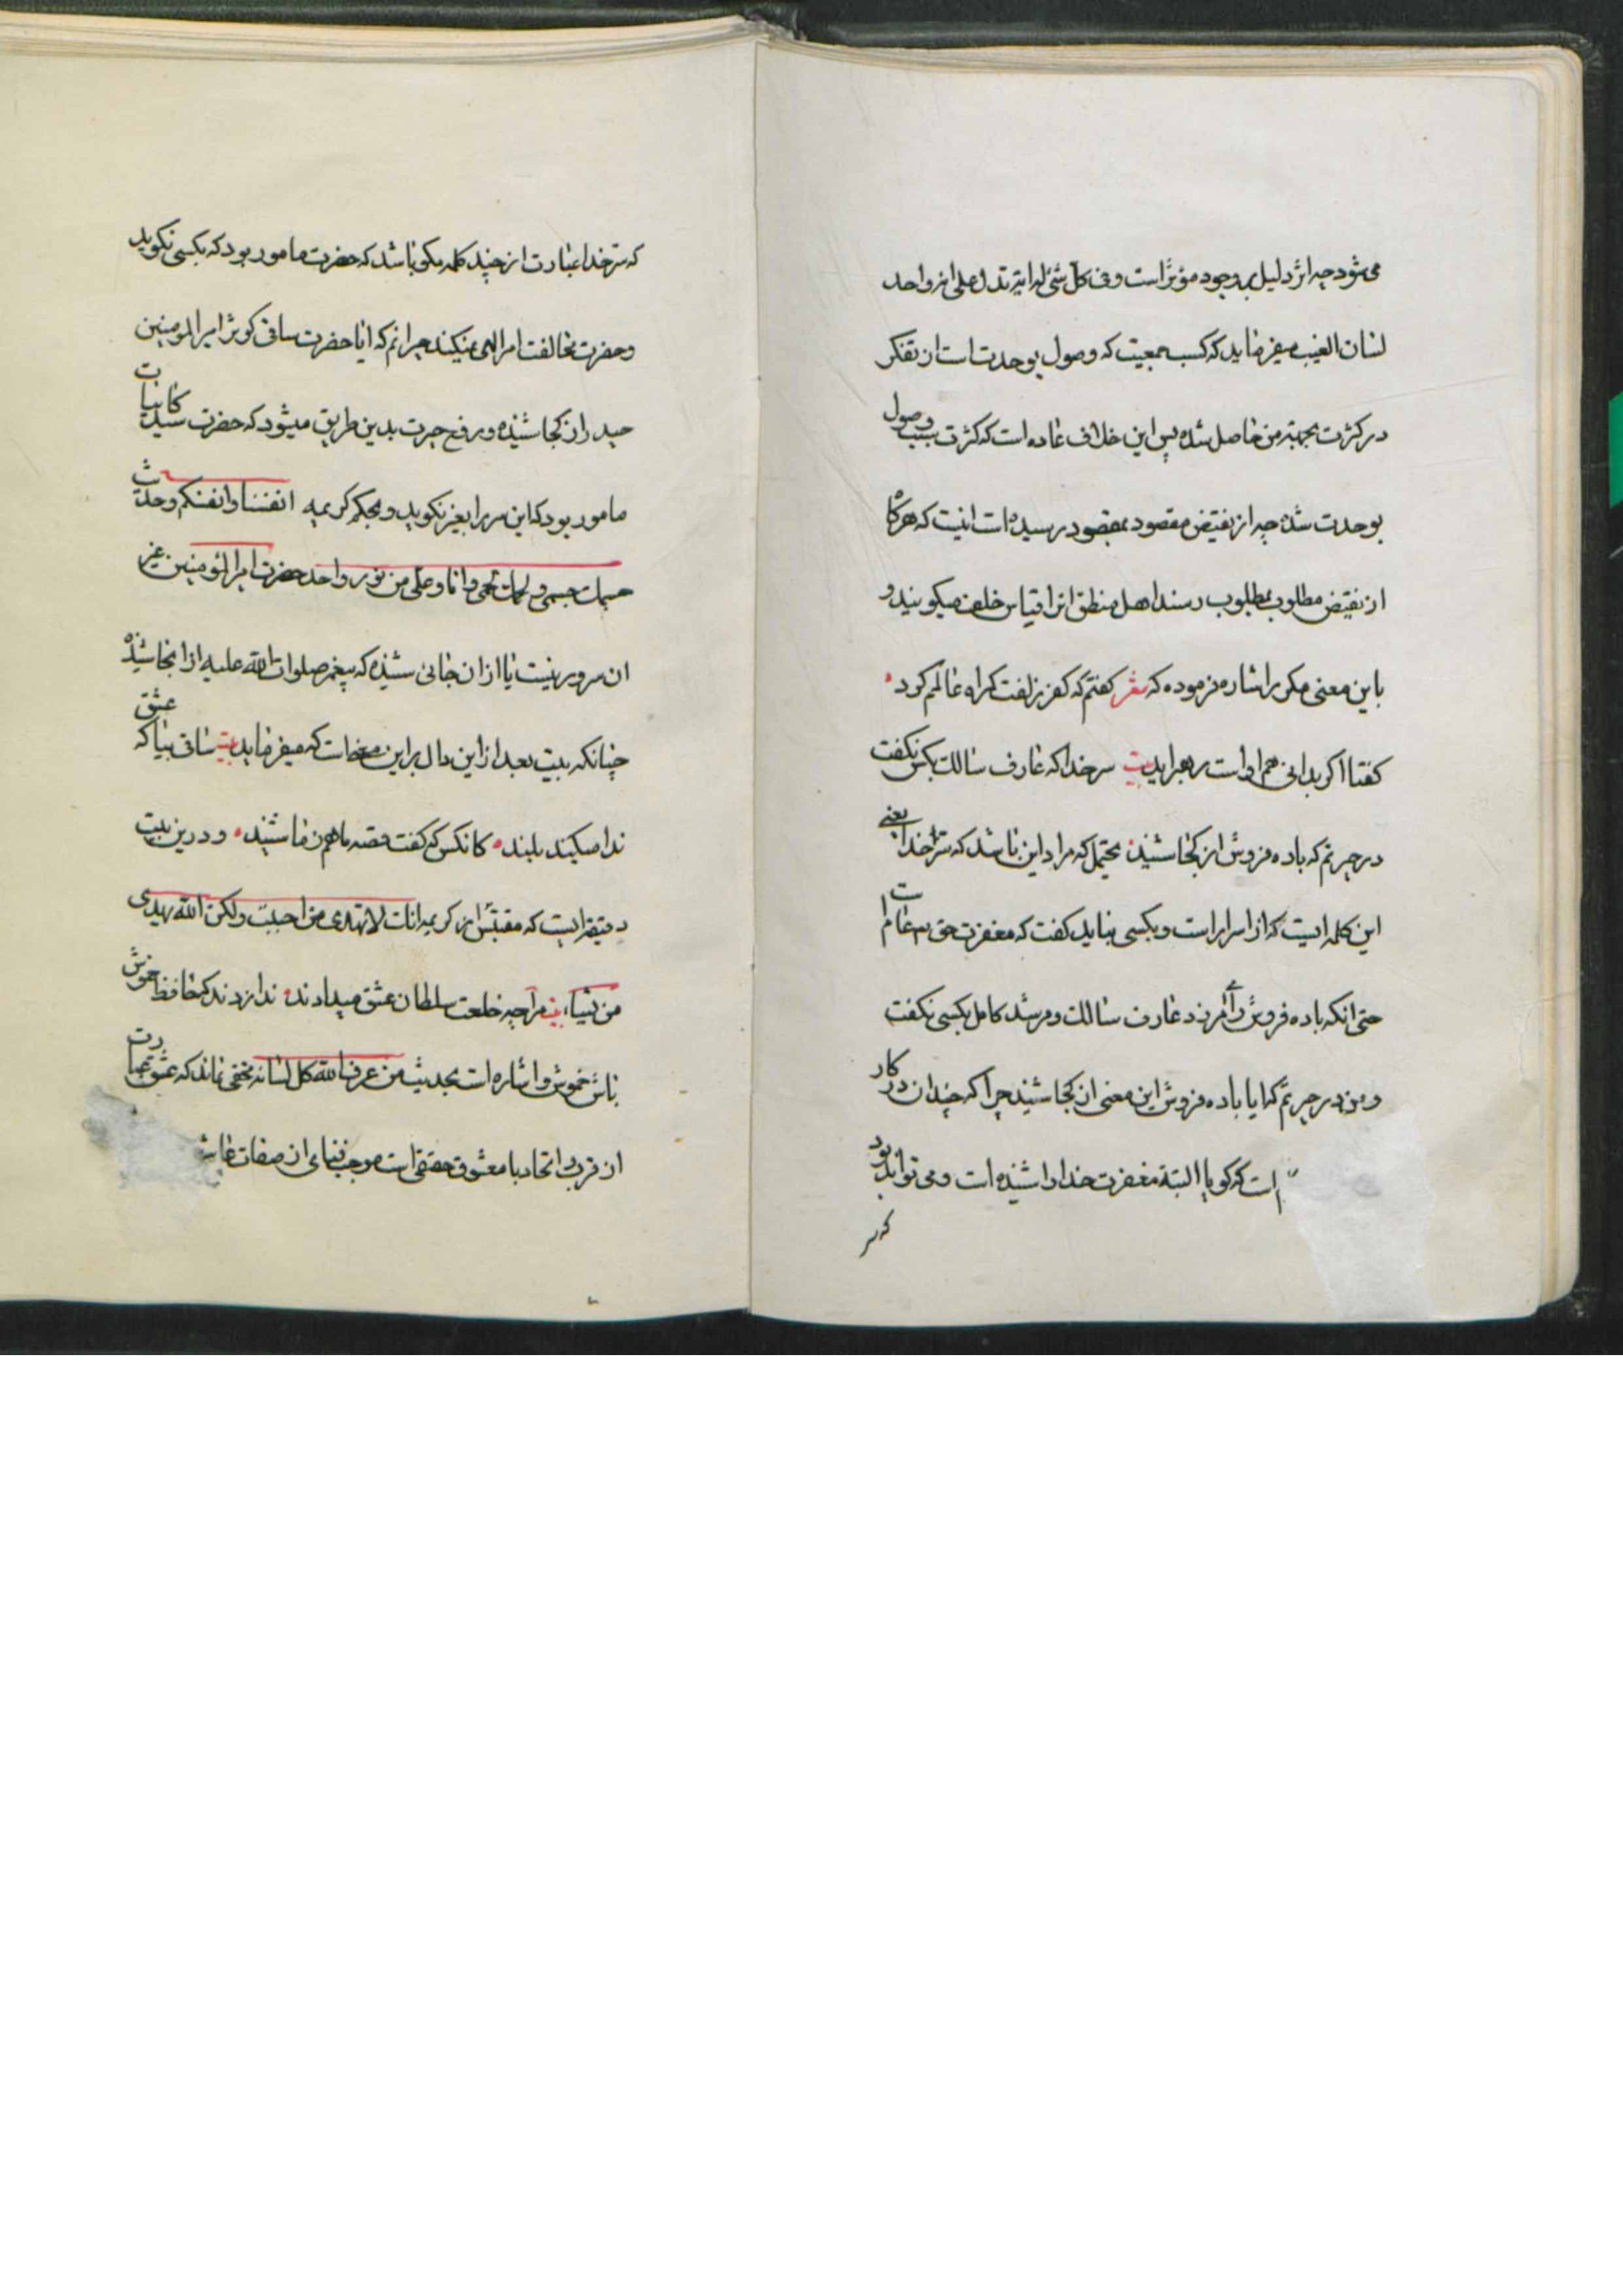 می‌شود چه اثر دلیل بر وجود مؤثر است و فی کل شئ له ایة تدل علی انه واحد
لسان الغیب میفرماید که کسب جمعیت که وصول بوحدتست از تفکر
در کثرت بجهة من حاصل شده پس این خلاف عاده است که کثرت سبب وصول
بوحدت شده چه از نقیض مقصود بمقصود رسیده است اینست که هرگاه
از نقیض مطلوب بمطلوب رسند اهل منطق انرا قیاس خلف میگویند و
باین معنی مکرر اشاره فرموده که شعر گفتم که کفر زلفت گمراه عالمم کرد
گفتا اگر بدانی هم اوات رهبر آید بیت سر خدا که عارف سالک بکس نگفت
در حیرتم که باده فروش از کجا شنید محتمل که مراد این باشد که سر خدا یعنی
این کلمه ایست که از اسرار است و بکسی نباید گفت که مغفرت حق عام است
حتی انکه باده فروش را آمرزد عارف سالک و مرشد کامل بکسی نگفت
و من در حیرتم که ایا باده فروش این معنی از کجا شنید چرا که چندان در کار
است که گویا البته مغفرت خدا را شنیده است و می تواند بود
که سر
که سر خدا عبارت از چند کلمه مگو باشد که حضرت مامور بود که بکسی نگوید
و حضرت مخالفت امر الهی نمیکند حیرانم که ایا حضرت ساقی کوثر امیر المومنین
حیدر از کجا شنیده و رفع حیرت بدین طریق میشود که حضرت سید کاینات
مامور بود که این سر را بغیر نگوید و بحکم کریمه انفسنا و انفسکم و حدیث
جسمک جسمی و لحمک لحمی و انا و علی من نور واحد حضرت امیر المؤمنین غیر
ان سرور نیست یا از ان جائی شنیده که پیغمبر صلوات الله علیه از انجا شنیده
چنانکه بیت بعد از این دال بر این معنی است که میفرماید بیت ساقی بیا که عشق
ندا میکند بلند کانکس که گفت قصه ما هم ز ما شنید و درین بیت
دقیقه ایست که مقتبس از کریمه انک لا تهدی من احببت ولکن الله یهدی
من یشاء بیت مرا چه خلعت سلطان عشق میدادند ندا زدند که حافظ خموش
باش خموش و اشاره است بحدیث من عرف الله کل لسانه مخفی نماند که عشق عبارت
از قرب و اتحاد با معشوق حقیقی است موجب فنای از صفات